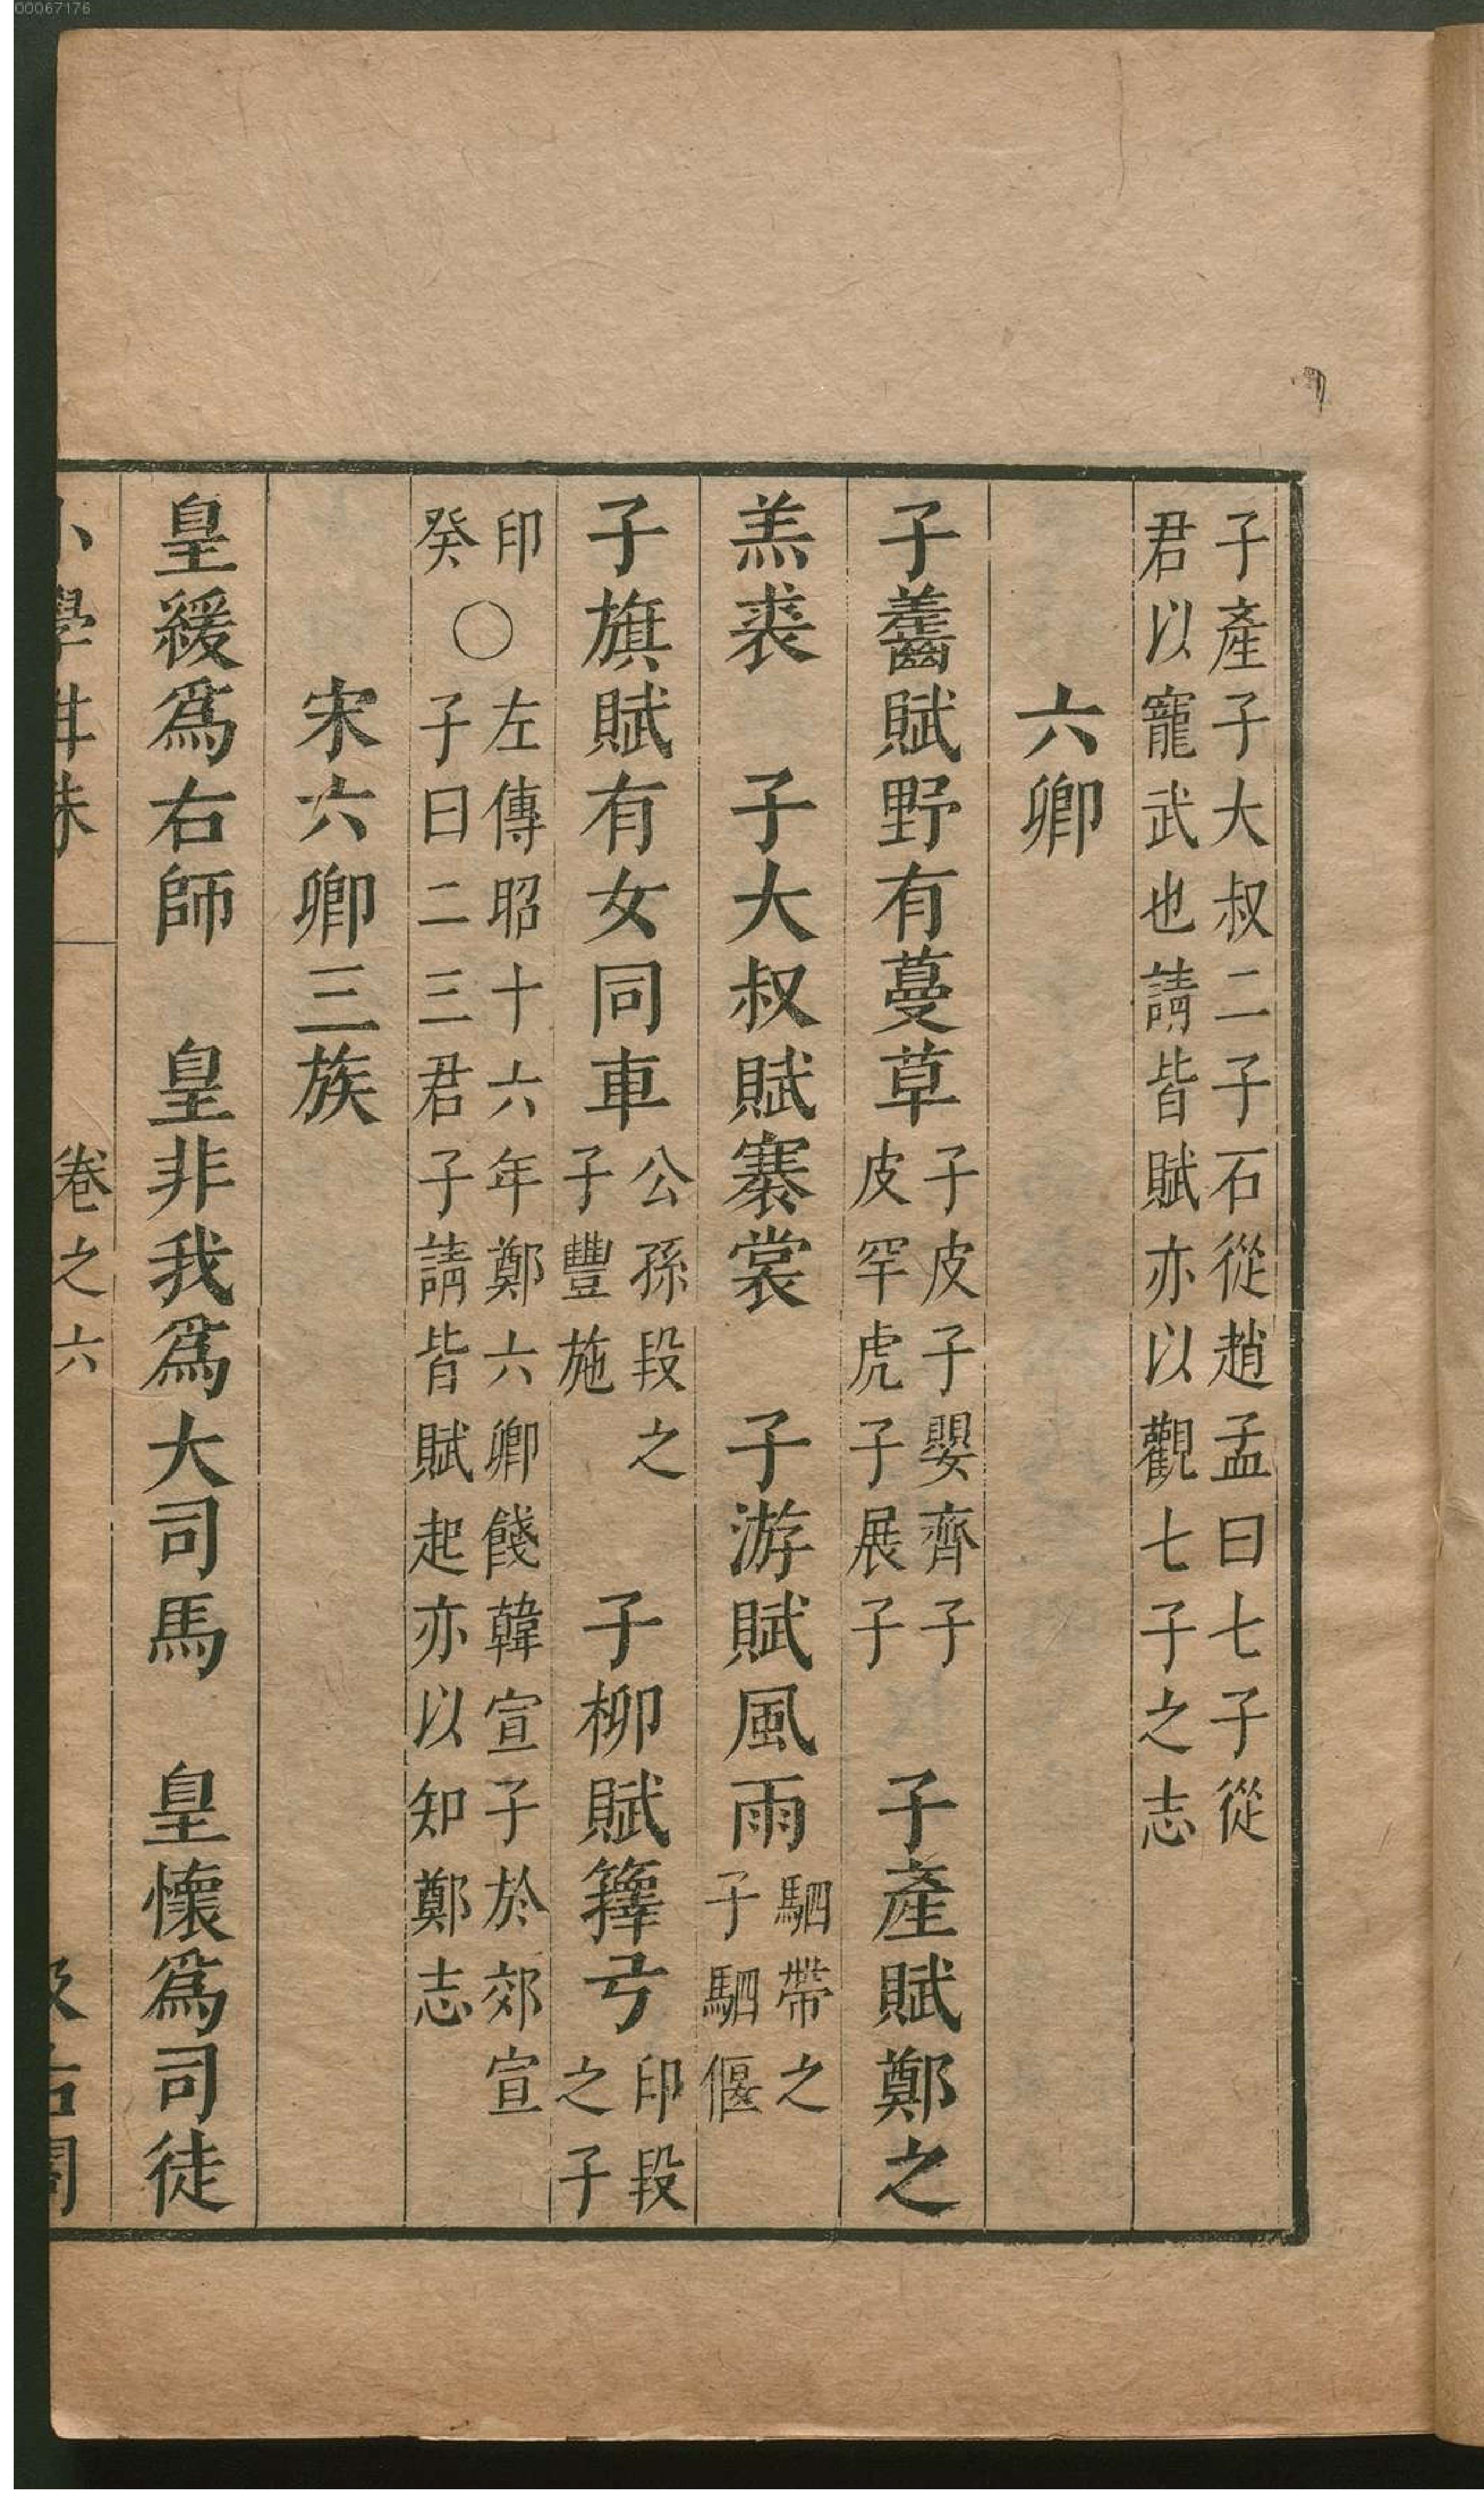 00067176
子產子大叔二子石從趙孟曰七子從
君以寵武也請皆賦亦以觀七子之志
六卿
子齹賦野有蔓草
子皮子嬰齊子
皮罕虎子展子
子產賦鄭之
羔裘　子大叔賦褰裳　子游賦風雨
駟帶之
子駟偃
子旗賦有女同車
公孫段之
子豐施
子柳賦籜兮
印段
之子
印
癸
○
左傳昭十六年鄭六卿餞韓宣子於郊宣
子曰二三君子請皆賦起亦以知鄭志
宋六卿三族
皇緩爲右師　皇非我爲大司馬　皇懷爲司徒
卷之六